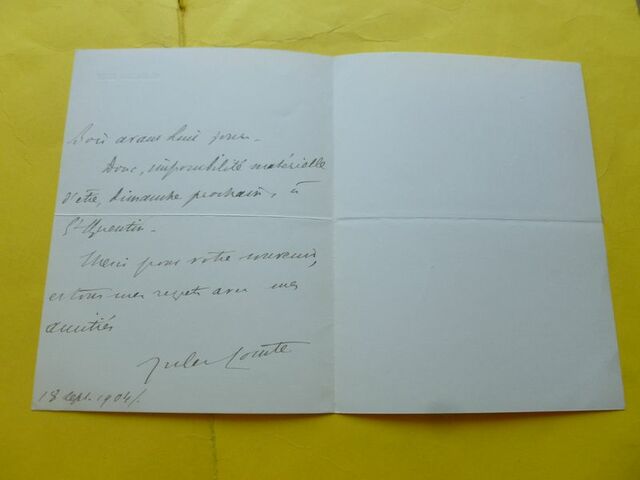 avant huit jours.
Donc, impossibilité matérielle
d'être, dimanche prochain, à
St Quentin.
Merci pour votre souvenir,
et tous mes regrets avec mes
amitiés
Jules Comte
18 sept. 1904/.